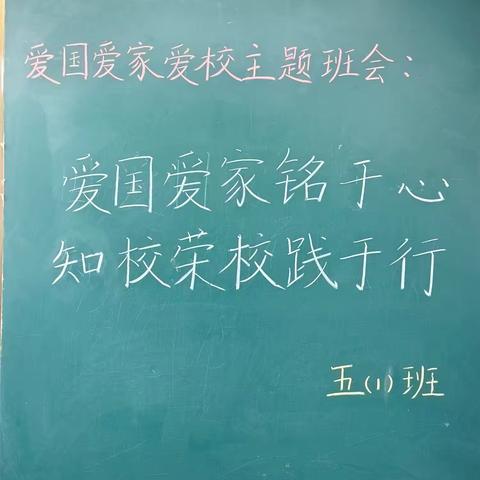 爱国爱家爱校主题班会：
爱国爱家铭于心
知校荣校践于行
五(1)班